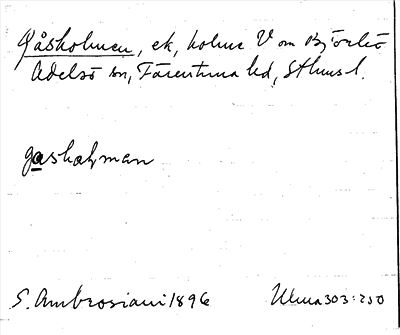 Gåsholmen, ek, holme V om Björkö
Adelsö sn, Färentuna hd, Sthms l.
gashah,man
S. Ambrosiani 1896 Ulma 303:250